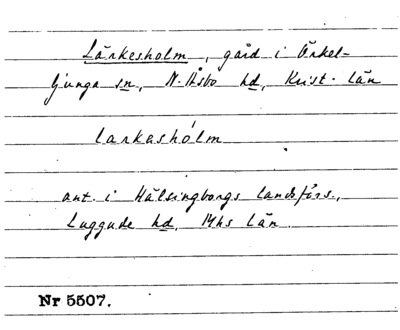 Lärkesholm, gård i Örkel-
ljunga sn, N. Åsbo hd, Krist. län
larkeshólm
ant. i Hälsingborgs landsförs.,
Luggude hd, Mhs län.
Nr 5507.